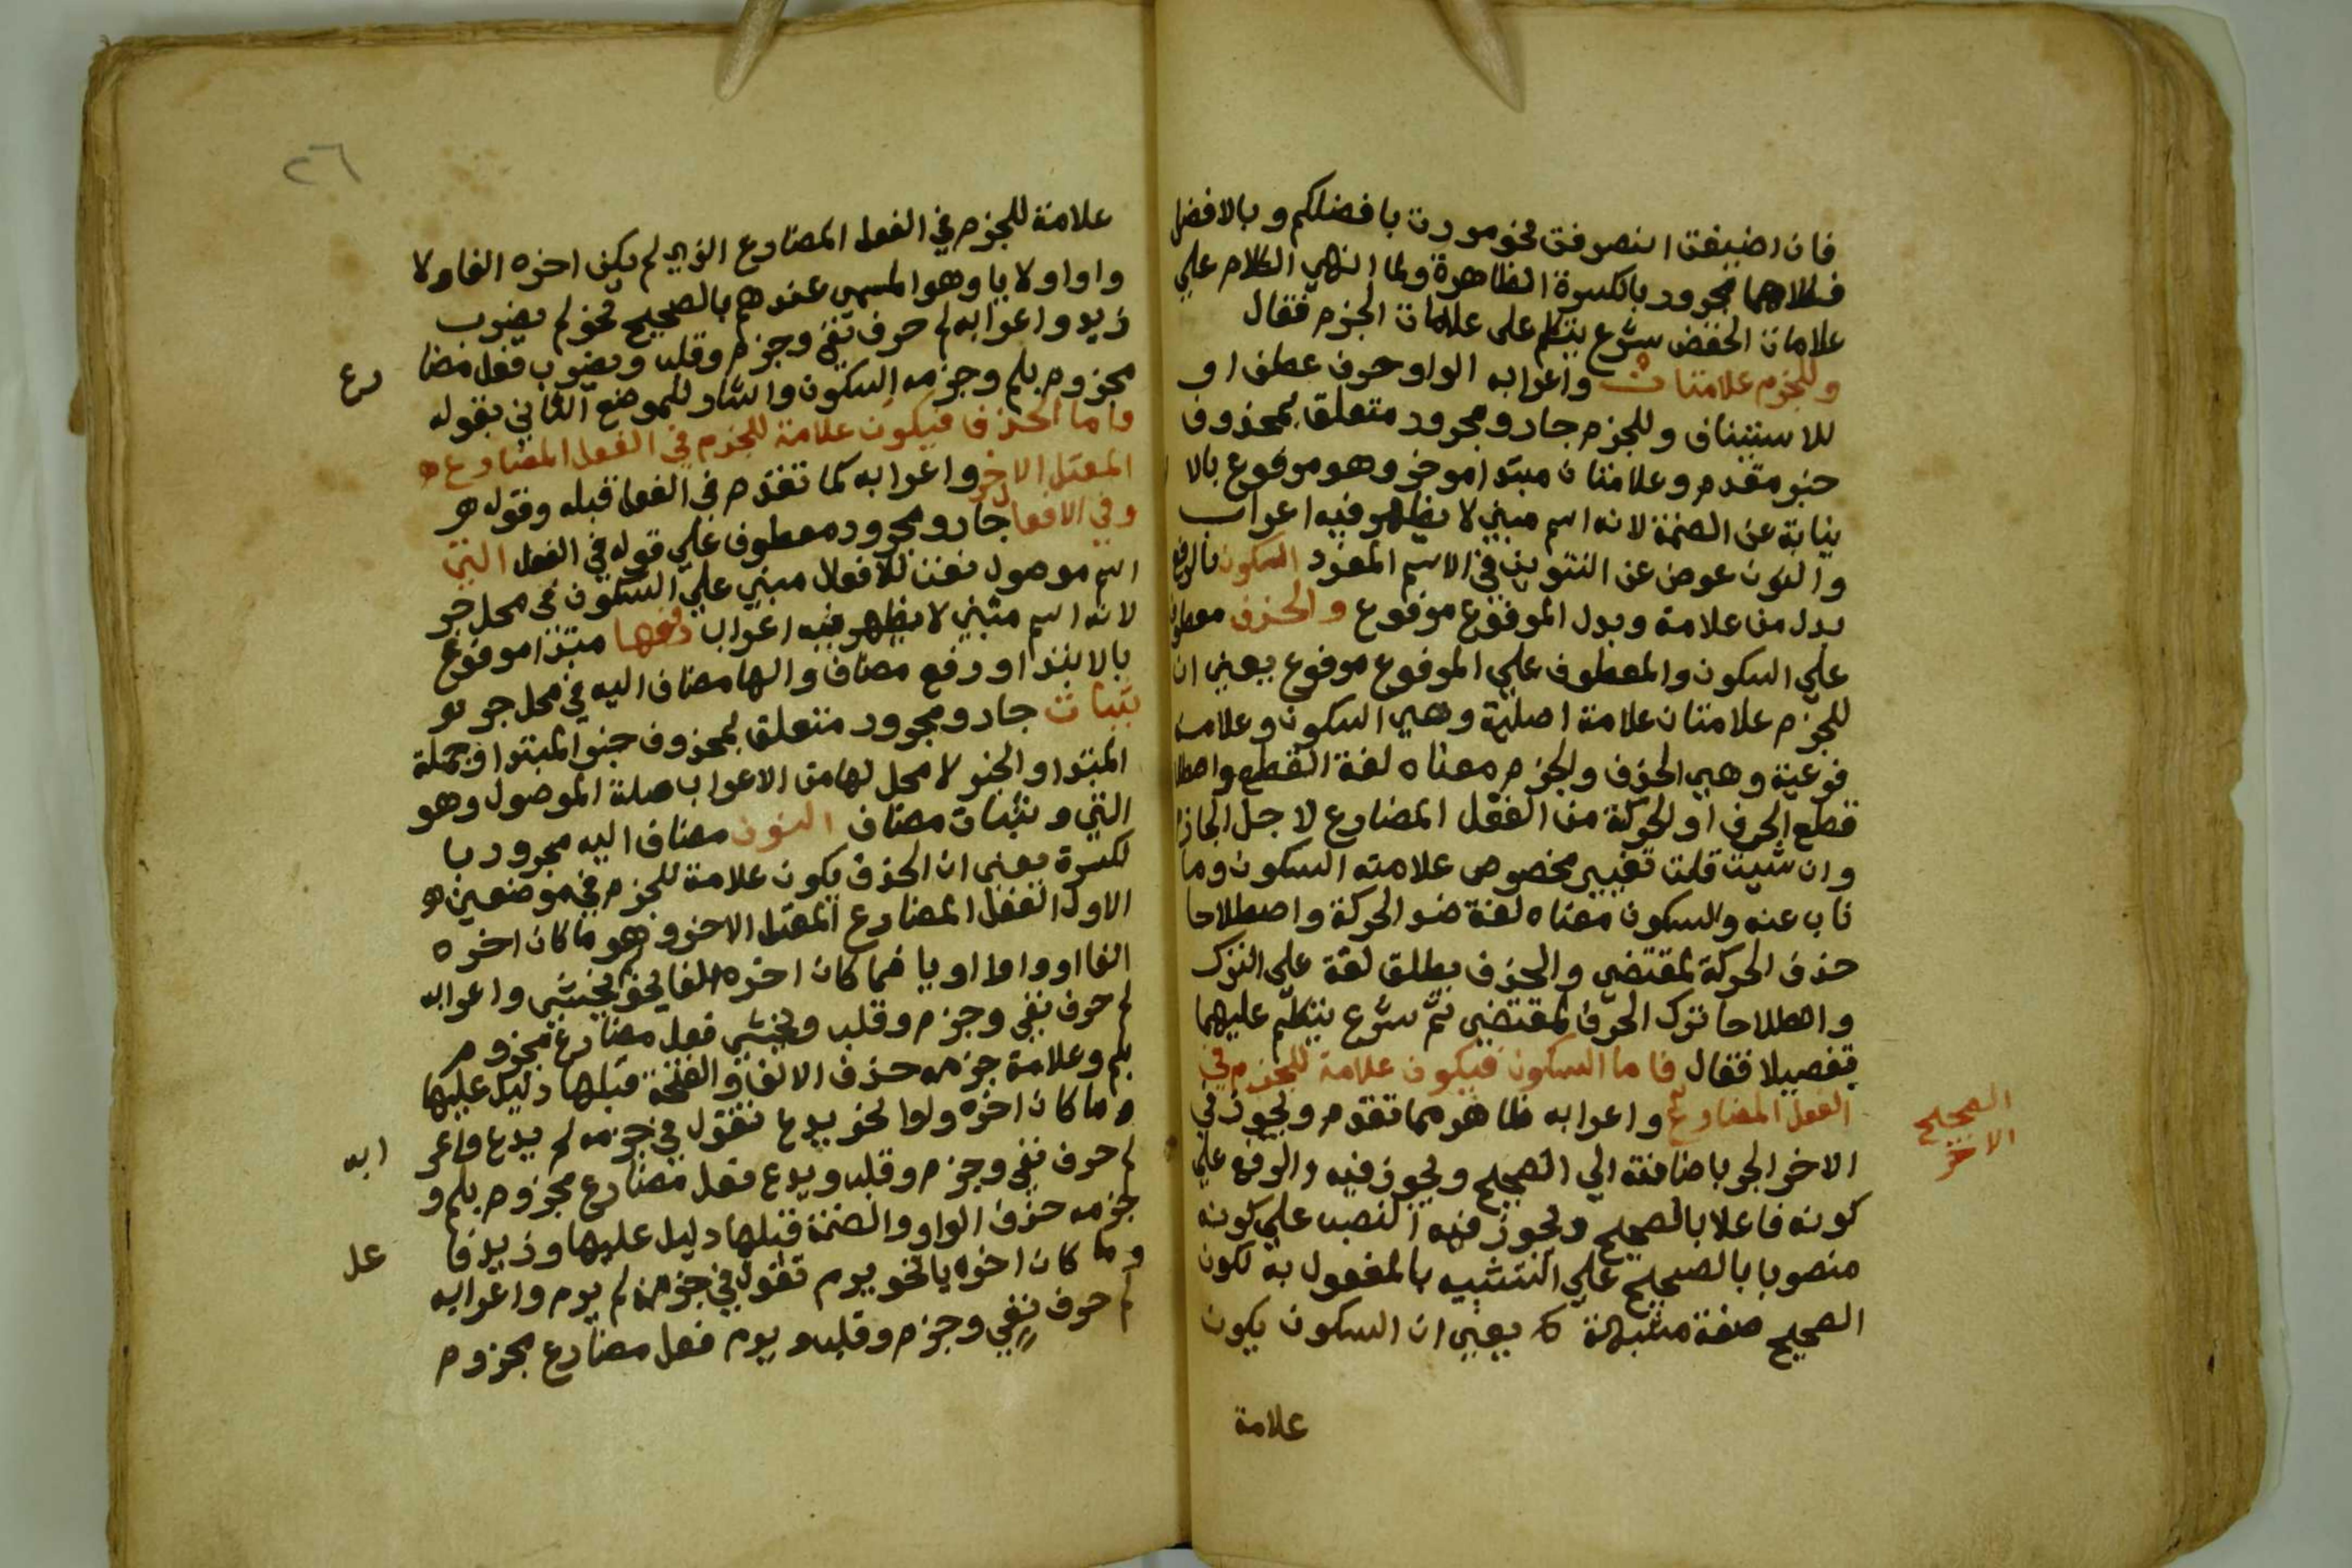 فان اضيفت انصرفت نحو مررت بافضلكم وبالافضل
فكلاهما مجرور بالكسرة الظاهرة ولما انهى الكلام علي
علامات الخفض شرع يتكلم على علامات الجزم فقال
وللجزم علامتان واعرابه الواو حرف عطف او
للاستيناف وللجزم جار ومجرور متعلق بمحذوف
خبر مقدم وعلامتان مبتدا موخر وهو مرفوع بالا
نيابة عن الضمة لانه اسم مبني لا يظهر فيه اعراب
والنون عوض عن التنوين في الاسم المفرد السكون بالرفع
بدل من علامة وبدل المرفوع مرفوع والحذف معطوف
علي السكون والمعطوف علي المرفوع مرفوع يعني ان
للجزم علامتان علامة اصلية وهي السكون وعلامة
فرعية وهي الحذف والجزم معناه لغة القطع واصطلا
قطع الحرف او الحركة من الفعل المضارع لاجل الجازم
وان شيت قلت تغيير مخصوص علامته السكون وما
ناب عنه والسكون معناه لغة ضد الحركة واصطلاحا
حذف الحركة لمقتضي والحذف يطلق لغة على الترك
واصطلاحا ترك الحرف لمقتضي ثم شرع يتكلم عليهما
تفصيلا فقال فاما السكون فيكون علامة للجزم في
الفعل المضارع واعرابه ظاهر مما تقدم ويجوز في
الصحيح
الاخر
الاخر الجر باضافته الي الصحيح ويجوز فيه الرفع علي
كونه فاعلا بالصحيح ويجوز فيه النصب علي كونه
منصوبا بالصحيح علي التشبيه بالمفعول به لكون
الصحيح صفة مشبهة يعني ان السكون يكون
علامة
٢٦
علامة للجزم في الفعل المضارع الذي لم يكن اخره الفا ولا
واوا ولا يا وهو المسمى عندهم بالصحيح نحو لم يضرب
زيد واعرابه لم حرف نفي وجزم وقلب ويضرب فعل مضا
رع
مجزوم بلم وجزمه السكون واشار للموضع الثاني بقوله
واما الحذف فيكون علامة للجزم في الفعل المضارع
المعتل الاخر واعرابه كما تقدم في الفعل قبله وقوله
وفي الافعال جار ومجرور معطوف علي قوله في الفعل التي
اسم موصول نعت للافعال مبني علي السكون في محل جر
لانه اسم مبني لا يظهر فيه اعراب رفعها مبتدا مرفوع
بالابتدا ورفع مضاف والها مضاف اليه في محل جر
بثبات جار ومجرور متعلق بمحذوف خبر المبتدا وجملة
المبتدا والخبر لا محل لها من الاعراب صلة الموصول وهو
التي وبثبات مضاف النون مضاف اليه مجرور با
لكسرة يعني ان الحذف يكون علامة للجزم في موضعين
الاول الفعل المضارع المعتل الاخر وهو ما كان اخره
الفا او واوا او يا فما كان اخره الفا نحو يخشي واعرابه
لم حرف نفي وجزم وقلب ويخشي فعل مضارع مجزوم
بلم وعلامة جزمه حذف الالف والفتحة قبلها دليل عليها
وما كان اخره واوا نحو يدع تقول في جزمه لم يدع واعر
ابه
لم حرف نفي وجزم وقلب ويدع فعل مضارع مجزوم بلم و
جزمه حذف الواو والضمة قبلها دليل عليها وزيد فا
عل
وما كان اخره يا نحو يرم تقول في جزمه لم يرم واعرابه
لم حرف نفي وجزم وقلب ويرم فعل مضارع مجزوم